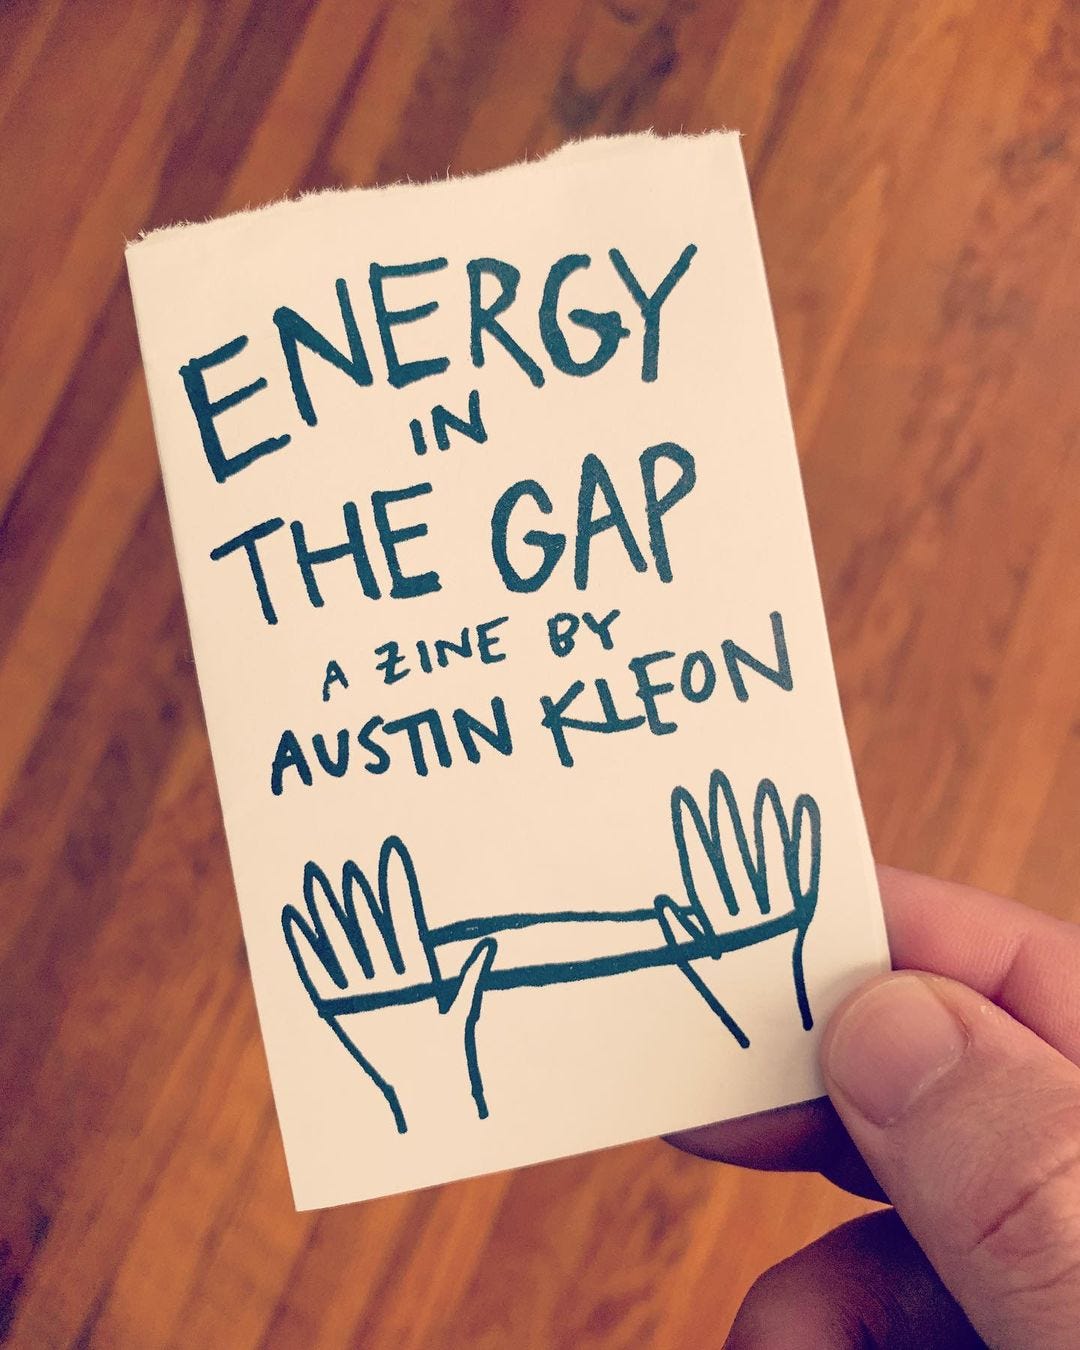 ENERGY
IN
THE GAP
A ZINE BY
AUSTIN KLEON